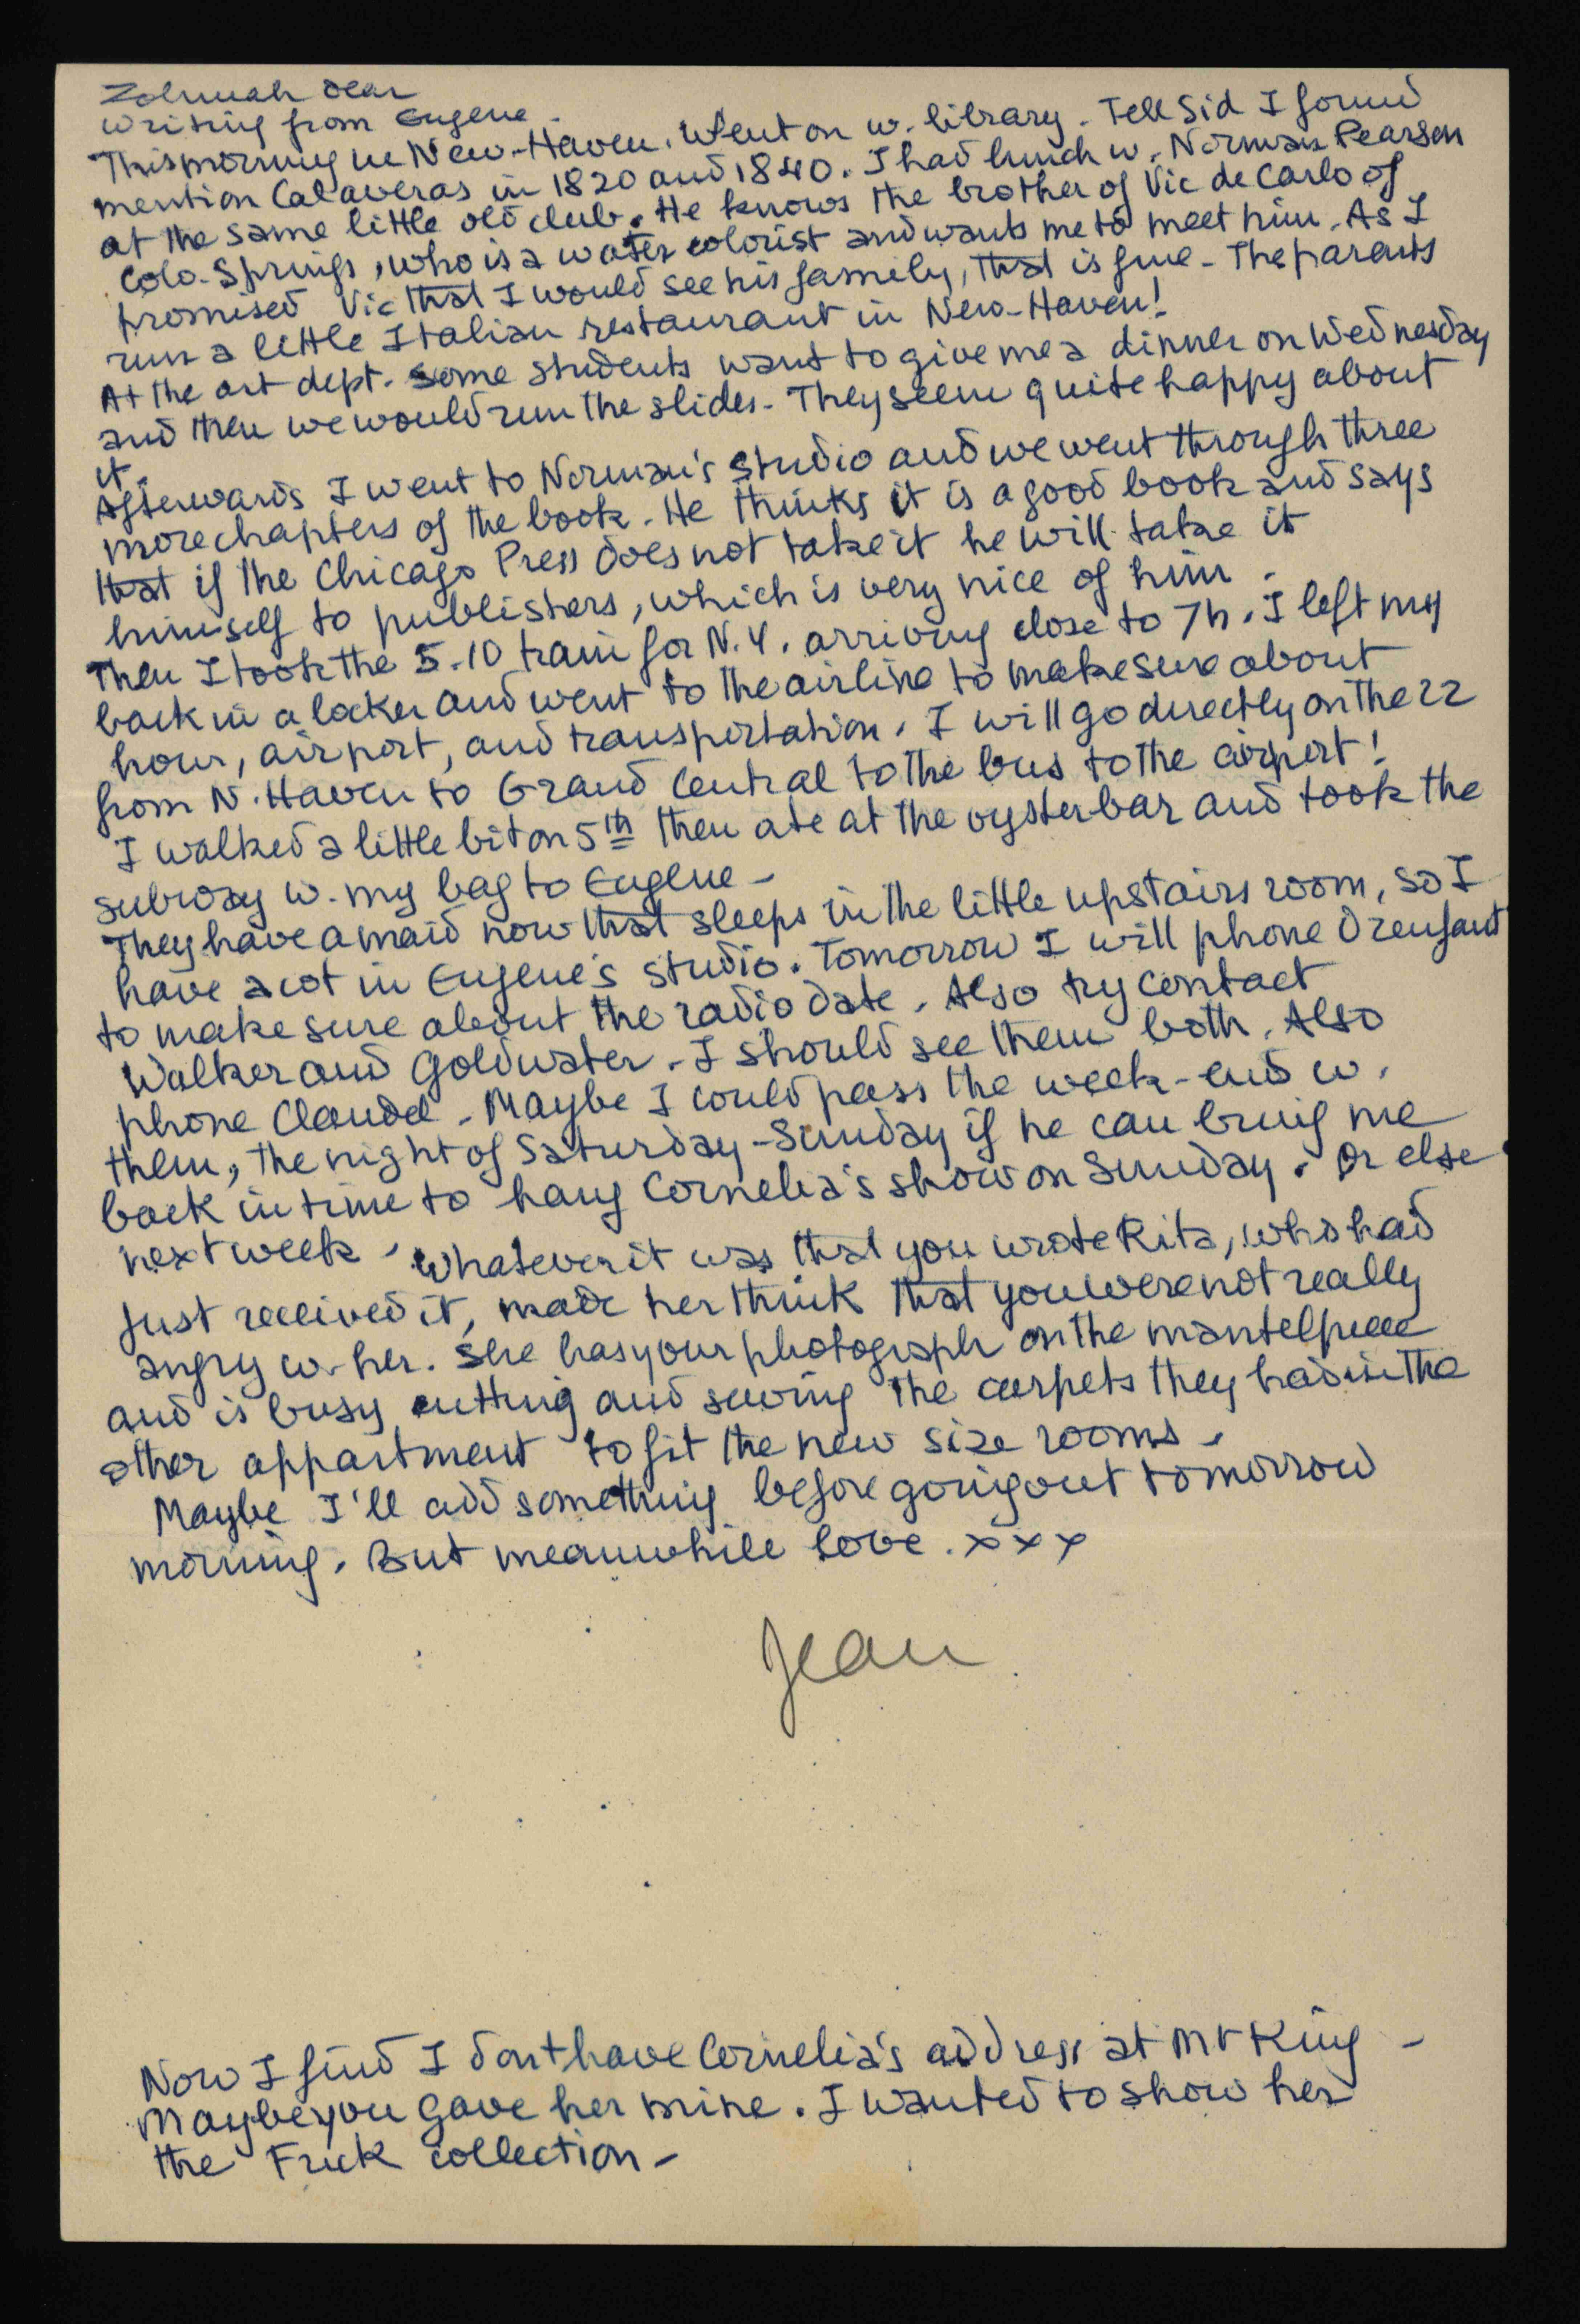 Zohmah dear
Writing from Eugene.
This morning in New-Haven. Went on w. library. Tell Sid I found
mention Calaveras in 1820 and 1840. I had lunch w. Norman Pearson
at the same little old club. He knows the brother of Vic de Carlo of
Colo. Springs, who is a water colorist and wants me to meet him. As I
promised Vic that I would see his family, that is fine - The parents
run a little Italian restaurant in New-Haven!
At the art dept. some students want to give me a dinner on Wednesday
and then we would run the slides - They seem quite happy about
it.
Afterwards I went to Norman's studio and we went through three
more chapters of the book. He thinks it is a good book and says
that if the Chicago Press does not take it he will take it
himself to publishers, which is very nice of him.
Then I took the 5.10 train for N.Y. arriving close to 7h. I left my
back in a locker and went to the airline to make sure about
hour, airport, and transportation. I will go directly on the 22
from N. Haven to Grand Central to the bus to the airport!
I walked a little bit on 5th then ate at the oysterbar and took the
subway w. my bag to Eugene -
They have a maid now that sleeps in the little upstairs room, so I
have a cot in Eugene's studio. Tomorrow I will phone Ozenfant
to make sure about the radio date. Also try contact
Walker and Goldwater - I should see them both. Also
phone Claudel - Maybe I could pass the week-end w.
them, the night of Saturday-Sunday if he can bring me
back in time to hang Cornelia's show on Sunday. Or else
next week - Whatever it was that you wrote Rita, who had
just received it, made her think that you were not really
angry w. her. She has your photograph on the mantelpiece
and is busy cutting and sewing the carpets they had in the
other appartment to fit the new size rooms -
Maybe I'll add something before going out tomorrow
morning. But meanwhile love. xxx
Jean
Now I find I dont have Cornelia's address at Mr King -
Maybe you gave her mine. I wanted to show her
the Frick collection -